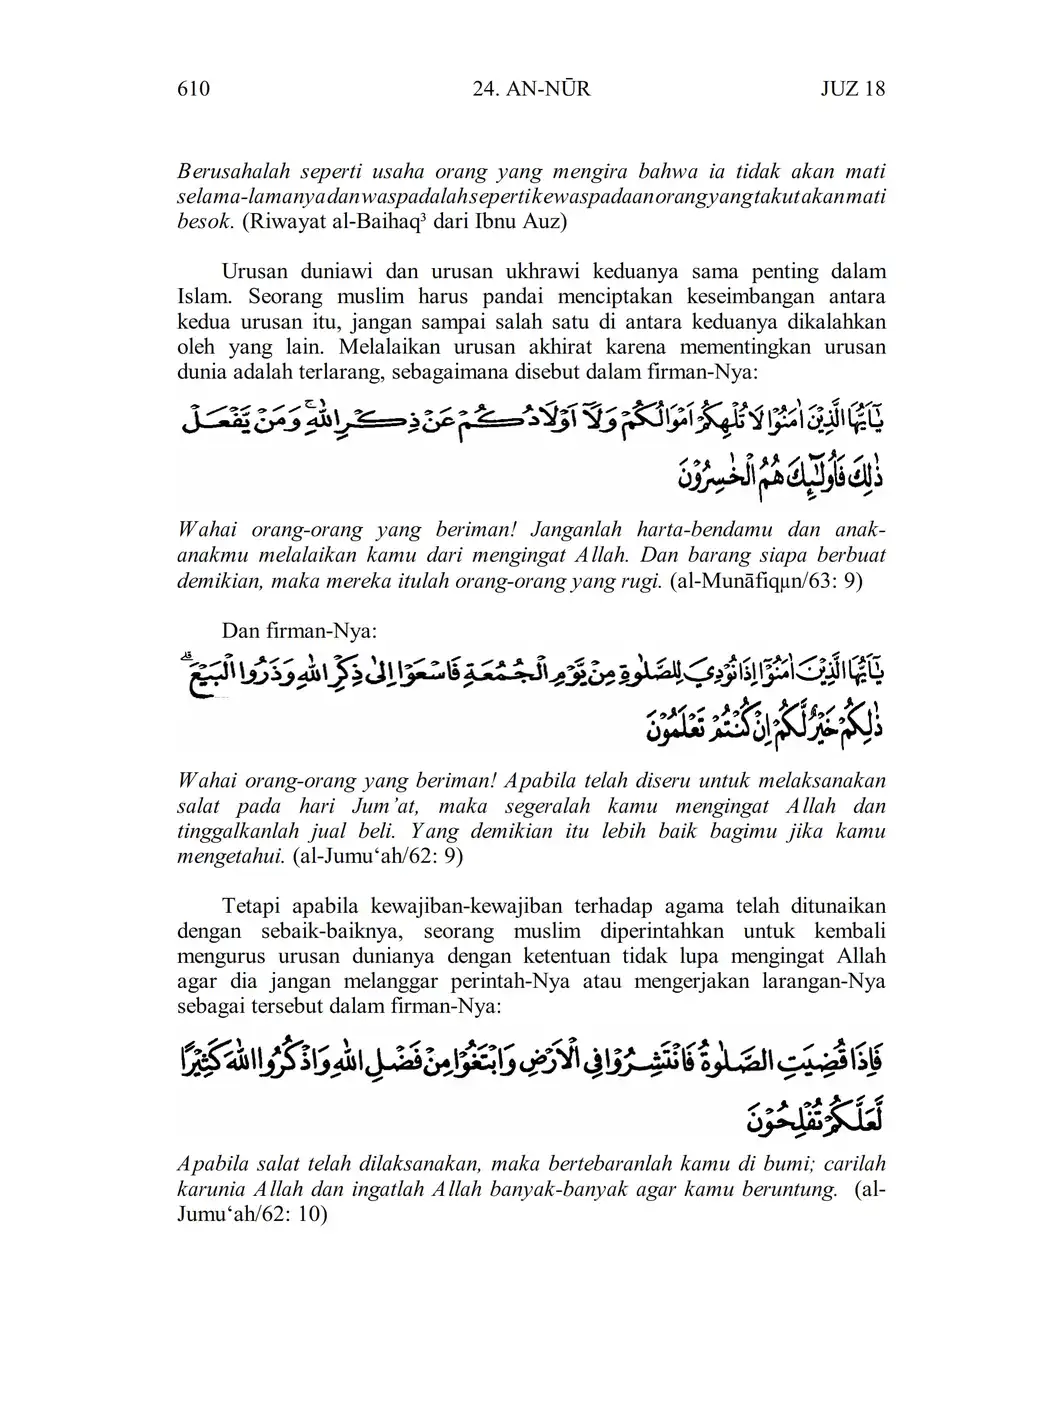 610 24. AN-NŪR JUZ 18
Berusahalah seperti usaha orang yang mengira bahwa ia tidak akan mati
selama-lamanya dan waspadalah seperti kewaspadaan orang yang takut akan mati
besok. (Riwayat al-Baihaq³ dari Ibnu Auz)
Urusan duniawi dan urusan ukhrawi keduanya sama penting dalam
Islam. Seorang muslim harus pandai menciptakan keseimbangan antara
kedua urusan itu, jangan sampai salah satu di antara keduanya dikalahkan
oleh yang lain. Melalaikan urusan akhirat karena mementingkan urusan
dunia adalah terlarang, sebagaimana disebut dalam firman-Nya:
يٰٓاَيُّهَا الَّذِيْنَ اٰمَنُوْا لَا تُلْهِكُمْ اَمْوَالُكُمْ وَلَآ اَوْلَادُكُمْ عَنْ ذِكْرِ اللّٰهِ ۚ وَمَنْ يَّفْعَلْ
ذٰلِكَ فَاُولٰۤىِٕكَ هُمُ الْخٰسِرُوْنَ
Wahai orang-orang yang beriman! Janganlah harta-bendamu dan anak-
anakmu melalaikan kamu dari mengingat Allah. Dan barang siapa berbuat
demikian, maka mereka itulah orang-orang yang rugi. (al-Munāfiqµn/63: 9)
Dan firman-Nya:
يٰٓاَيُّهَا الَّذِيْنَ اٰمَنُوْٓا اِذَا نُوْدِيَ لِلصَّلٰوةِ مِنْ يَّوْمِ الْجُمُعَةِ فَاسْعَوْا اِلٰى ذِكْرِ اللّٰهِ وَذَرُوا الْبَيْعَ ۗ
ذٰلِكُمْ خَيْرٌ لَّكُمْ اِنْ كُنْتُمْ تَعْلَمُوْنَ
Wahai orang-orang yang beriman! Apabila telah diseru untuk melaksanakan
salat pada hari Jum’at, maka segeralah kamu mengingat Allah dan
tinggalkanlah jual beli. Yang demikian itu lebih baik bagimu jika kamu
mengetahui. (al-Jumu‘ah/62: 9)
Tetapi apabila kewajiban-kewajiban terhadap agama telah ditunaikan
dengan sebaik-baiknya, seorang muslim diperintahkan untuk kembali
mengurus urusan dunianya dengan ketentuan tidak lupa mengingat Allah
agar dia jangan melanggar perintah-Nya atau mengerjakan larangan-Nya
sebagai tersebut dalam firman-Nya:
فَاِذَا قُضِيَتِ الصَّلٰوةُ فَانْتَشِرُوْا فِى الْاَرْضِ وَابْتَغُوْا مِنْ فَضْلِ اللّٰهِ وَاذْكُرُوا اللّٰهَ كَثِيْرًا
لَّعَلَّكُمْ تُفْلِحُوْنَ
Apabila salat telah dilaksanakan, maka bertebaranlah kamu di bumi; carilah
karunia Allah dan ingatlah Allah banyak-banyak agar kamu beruntung. (al-
Jumu‘ah/62: 10)